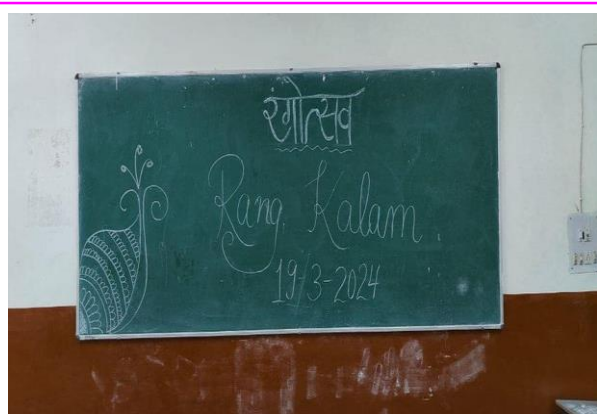 रंगोत्सव
Rang Kalam
19-3-2024